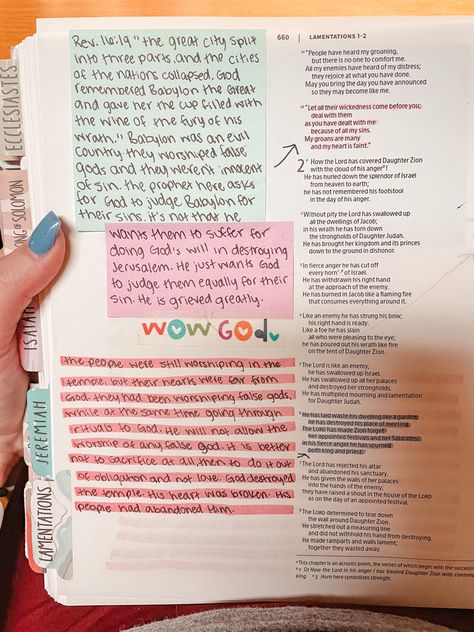 ECCLESIASTES
SONG OF SOLOMON
ISAIAH
JEREMIAH
LAMENTATIONS
Rev. 16:19 "the great city split
into three parts, and the cities
of the nations collapsed, God
remembered Babylon the Great
and gave her the cup filled with
the wine of the fury of his
wrath." Babylon was an evil
country, they worshiped false
gods and they weren't innocent
of sin. the prophet here asks
for God to judge Babylon for
their sins. it's not that he
wants them to suffer for
doing God's will in destroying
Jerusalem. He just wants God
to judge them equally for their
sin. He is grieved greatly.
WOW GOD.
the people were still worshiping in the
temple, but their hearts were far from
God. they had been worshiping false gods,
while at the same time going through
rituals to God. He will not allow the
worship of any false god. it is better
not to sacrifice at all, then to do it out
of obligation and not love. God destroyed
the temple. His heart was broken. His
people had abandoned Him.
660 | LAMENTATIONS 1-2
21 "People have heard my groaning,
but there is no one to comfort me.
All my enemies have heard of my distress;
they rejoice at what you have done.
May you bring the day you have announced
so they may become like me.
22 "Let all their wickedness come before you;
deal with them
as you have dealt with me
because of all my sins.
My groans are many
and my heart is faint."
2 How the Lord has covered Daughter Zion
with the cloud of his anger!
He has hurled down the splendor of Israel
from heaven to earth;
he has not remembered his footstool
in the day of his anger.
2 Without pity the Lord has swallowed up
all the dwellings of Jacob;
in his wrath he has torn down
the strongholds of Daughter Judah.
He has brought her kingdom and its princes
down to the ground in dishonor.
3 In fierce anger he has cut off
every horn of Israel.
He has withdrawn his right hand
at the approach of the enemy.
He has burned in Jacob like a flaming fire
that consumes everything around it.
4 Like an enemy he has strung his bow;
his right hand is ready.
Like a foe he has slain
all who were pleasing to the eye;
he has poured out his wrath like fire
on the tent of Daughter Zion.
5 The Lord is like an enemy;
he has swallowed up Israel.
He has swallowed up all her palaces
and destroyed her strongholds.
He has multiplied mourning and lamentation
for Daughter Judah.
6 He has laid waste his dwelling like a garden;
he has destroyed his place of meeting.
The LORD has made Zion forget
her appointed festivals and her Sabbaths;
in his fierce anger he has spurned
both king and priest.
7 The Lord has rejected his altar
and abandoned his sanctuary.
He has given the walls of her palaces
into the hands of the enemy;
they have raised a shout in the house of the LORD
as on the day of an appointed festival.
8 The LORD determined to tear down
the wall around Daughter Zion.
He stretched out a measuring line
and did not withhold his hand from destroying.
He made ramparts and walls lament;
together they wasted away.
This chapter is an acrostic poem, the verses of which begin with the
Or How the Lord in his anger / has treated Daughter Zion with
3 Horn here symbolizes strength.